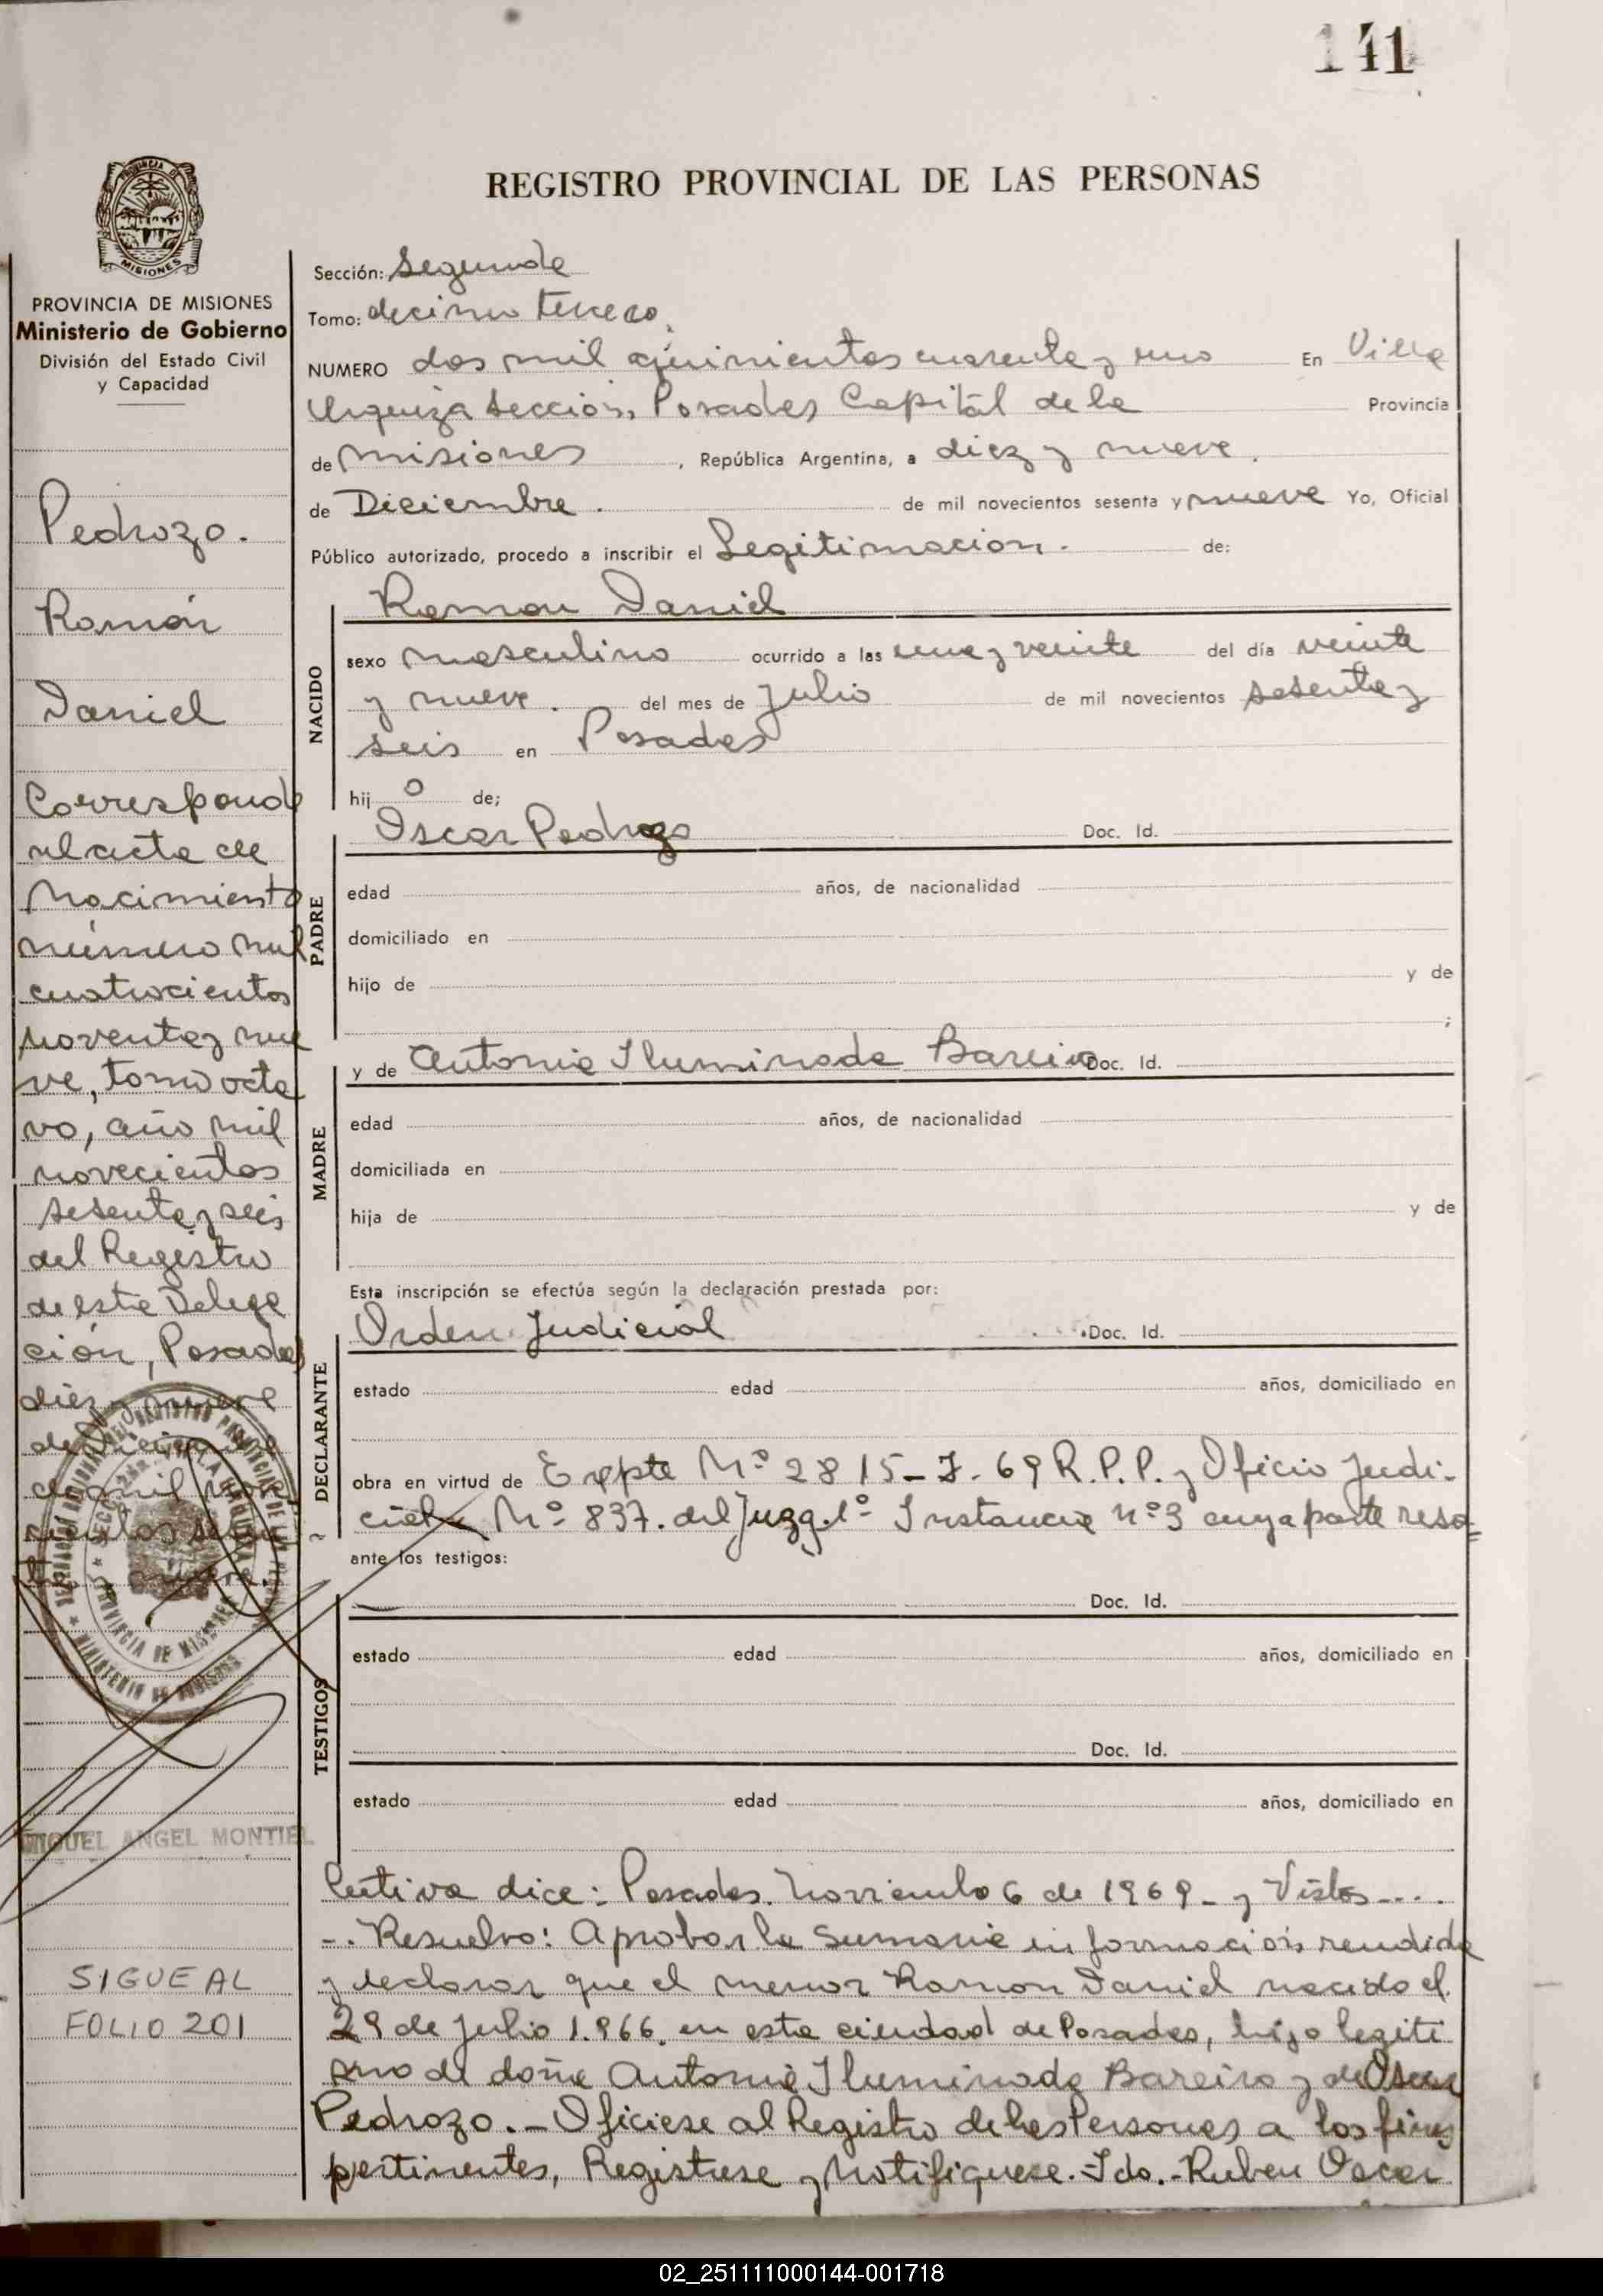 141
REGISTRO PROVINCIAL DE LAS PERSONAS
PROVINCIA DE MISIONES
Ministerio de Gobierno
División del Estado Civil
y Capacidad
Pedrozo.
Ramón
Daniel
Corresponde
al acta de
Nacimiento
número mil
cuatrocientos
noventa y nue
ve, tomo octa
vo, año mil
novecientos
sesenta y seis
del Registro
de esta Delega
ción, Posadas
diez y nueve
de Diciembre
de mil nove
cientos sesen
MIGUEL ANGEL MONTIEL
SIGUE AL
FOLIO 201
Sección: Segunda
Tomo: decimo tercero.
NUMERO dos mil quinientos cuarenta y uno En Villa
Urquiza Sección, Posadas Capital de la Provincia
de Misiones, República Argentina, a diez y nueve.
de Diciembre. de mil novecientos sesenta y nueve Yo, Oficial
Público autorizado, procedo a inscribir el Legitimacion. de:
Ramon Daniel
NACIDO
sexo masculino ocurrido a las una y veinte del día veinte
y nueve. del mes de Julio de mil novecientos sesenta y
seis en Posadas
hij o de;
PADRE
Oscar Pedrozo Doc. Id.
edad años, de nacionalidad
domiciliado en
hijo de y de
;
MADRE
y de Antonia Iluminada Bareiro Doc. Id.
edad años, de nacionalidad
domiciliada en
hija de y de
Esta inscripción se efectúa según la declaración prestada por:
DECLARANTE
Orden Judicial Doc. Id.
estado edad años, domiciliado en
obra en virtud de Expte Nº 2815-J-69 R.P.P. y Oficio Judi-
cial Nº 837. del Juzg. 1º Instancia nº 3 cuya parte reso=
ante los testigos:
TESTIGOS
Doc. Id.
estado edad años, domiciliado en
Doc. Id.
estado edad años, domiciliado en
lutiva dice: Posadas. Noviembre 6 de 1969- y Vistos....
-. Resuelvo: Aprobar la sumaria informacion rendida
y declarar que el menor Ramon Daniel nacido el
29 de Julio 1.966. en esta ciudad de Posadas, hijo legiti
mo de doña Antonia Iluminada Bareiro y de Oscar
Pedrozo.- Oficiese al Registro de las Personas a los fines
pertinentes, Registrese y Notifiquese. Fdo.- Ruben Oscar
02_251111000144-001718